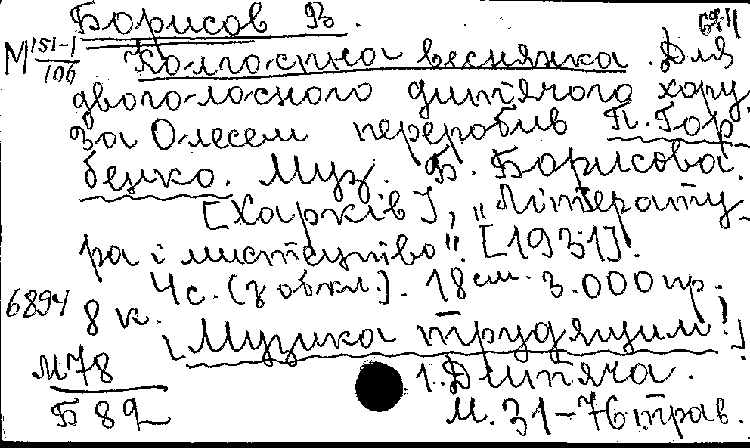 Борисов В.
М 151-1/106
Колгоспна веснянка. Для
двоголосного дитячого хору.
За Олесем переробив П. Гор-
бенко. Муз. Б. Борисова.
[Харків], „Літерату-
ра і мистецтво". [1931].
4 с. (з обкл.). 18 см. 3.000 пр.
6894 8 к.
[Музика трудящим!]
М78 1. Дитяча.
Б 89 М. 31-76 трав.